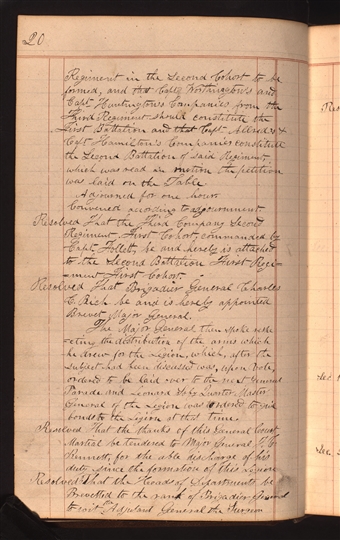 20.
Regiment in the Second Cohort to be
formed, and that Capt. Worthington's and
Capt. Huntington's Companies from the
Third Regiment should constitute the
First Battalion and that Capt. Allred's &
Capt. Hamilton's Companies constitute
the Second Battalion of said Regiment,
which was read on motion the petition
was laid on the Table.
Adjourned for one hour.
Convened according to adjournment.
Resolved That the Third Company Second
Regiment First Cohort, commanded by
Capt. Follett, be and hereby is attached
to the Second Battalion First Regi-
-ment First Cohort.
Resolved That Brigadier General Charles
C. Rich be and is hereby appointed
Brevet Major General.
The Major General then spoke resp-
ecting the distribution of the arms which
he drew for the Legion, which, after the
subject had been discussed was, upon vote,
ordered to be laid over to the next General
Parade and Leonard Soby Quarter Master
General of the Legion was ordered to give
bonds to the Legion at that time.
Resolved That the thanks of this General Court
Martial be tendered to Major General J. C.
Bennett, for the able discharge of his
duty since the formation of this Legion.
Resolved That the Heads of Departments be
Brevetted to the rank of Brigadier General
to wit: Adjutant General the Surgeon